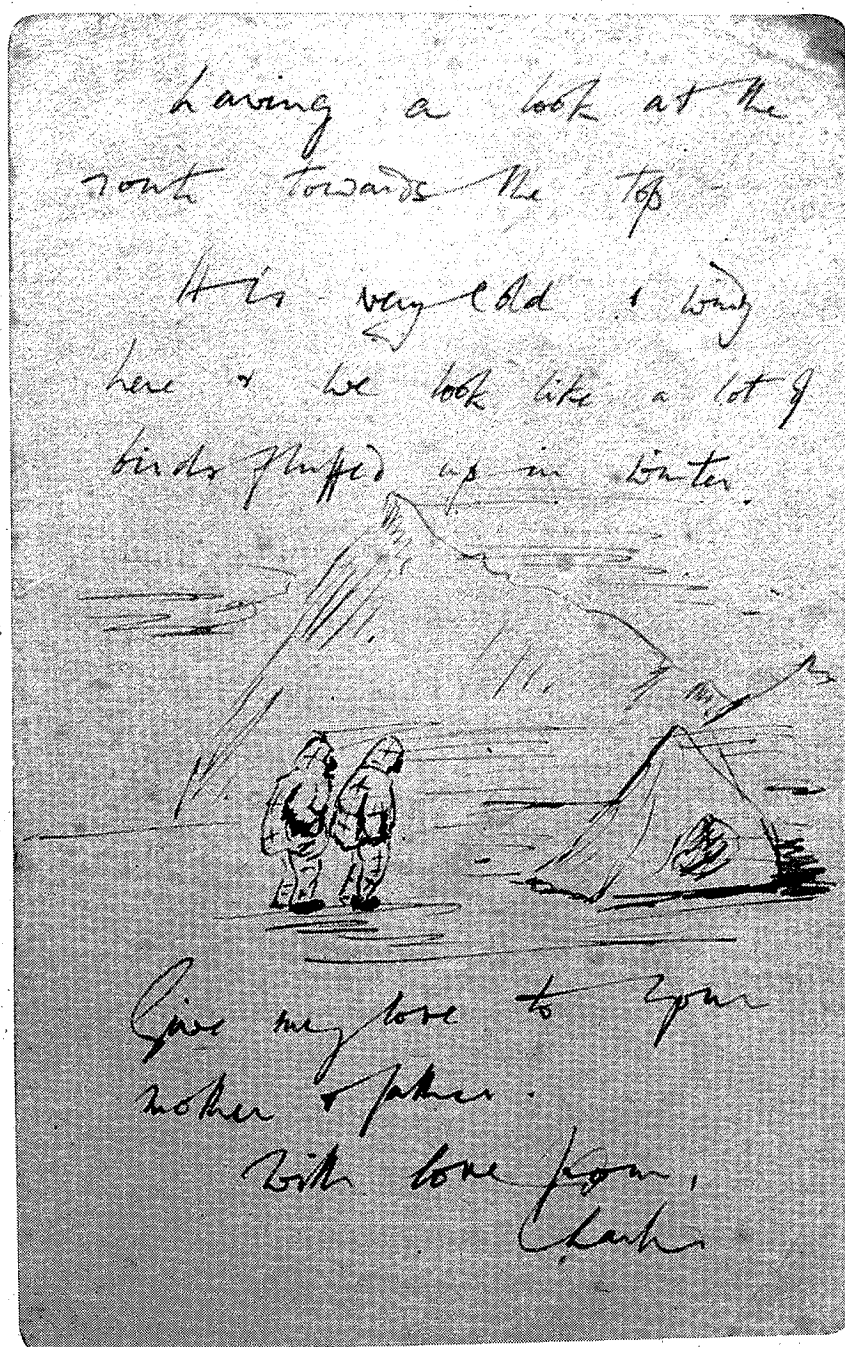 having a look at the
route towards the top -
It is very cold & windy
here & we look like a lot of
birds fluffed up in winter.
Give my love to your
mother & father.
With love from,
Charles